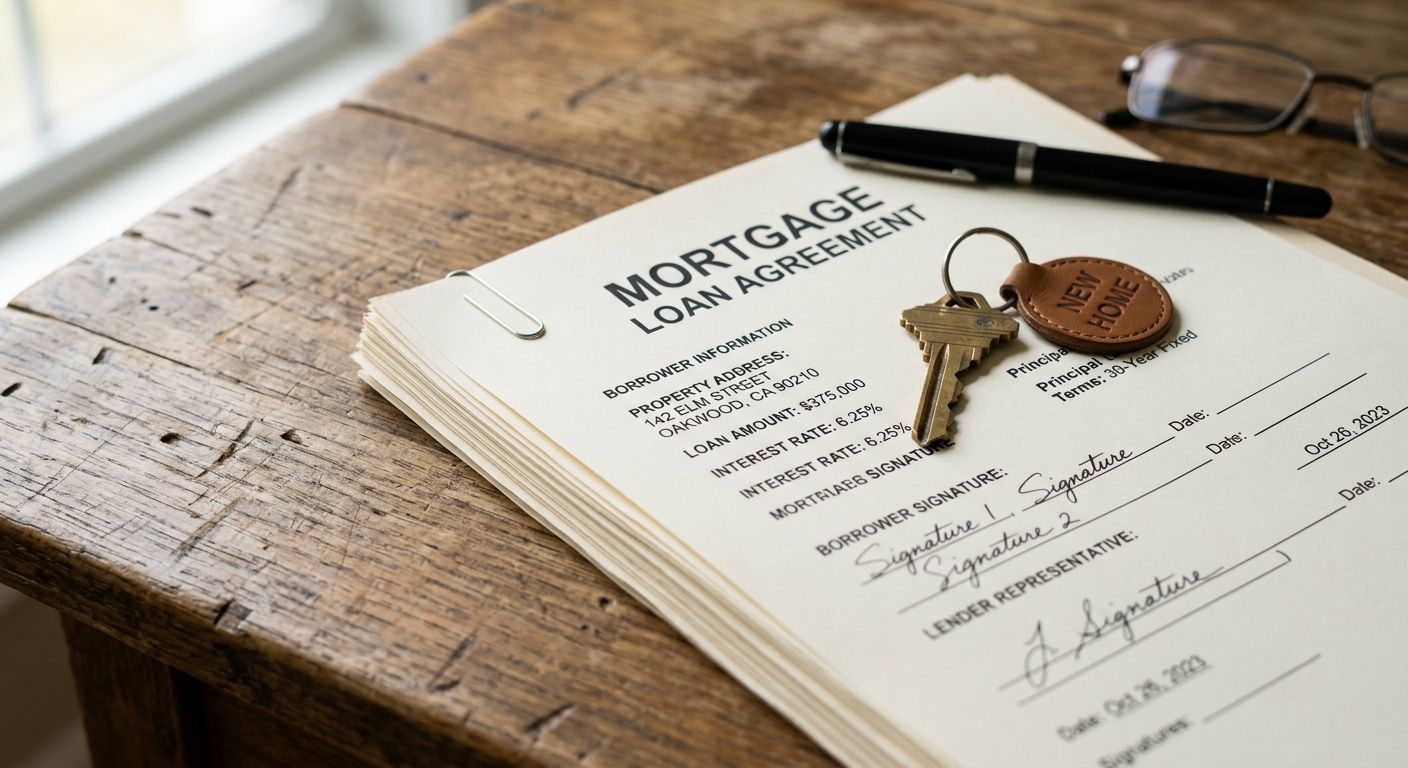 MORTGAGE
LOAN AGREEMENT
NEW
HOME
BORROWER INFORMATION
PROPERTY ADDRESS:
142 ELM STREET
OAKWOOD, CA 90210
LOAN AMOUNT: $375,000
INTEREST RATE: 6.25%
INTEREST RATE: 6.25%
MORTRIAES SIGNATURE
Principal
Principal
Terms: 30-Year Fixed
BORROWER SIGNATURE:
Signature 1, Signature
Date:
Signature 2
Date:
Oct 26, 2023
LENDER REPRESENTATIVE:
J. Signature
Date:
Date: Oct 26, 2023
Signatures: